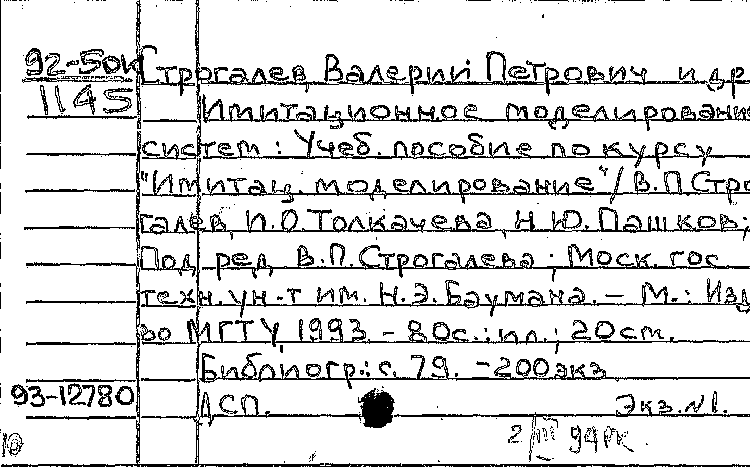 92-50к Строгалев, Валерий Петрович и др
1145 Имитационное моделирование
систем : Учеб. пособие по курсу
"Имитац. моделирование" / В.П.Стро
галев, И.О.Толкачева, Н.Ю.Пашков;
Под ред. В.П.Строгалева ; Моск. гос.
техн. ун-т им. Н.Э.Баумана. – М.: Изд
во МГТУ, 1993. - 80с.: ил.; 20см.
Библиогр.: с. 79. – 200экз
93-12780 ДСП. Экз.№1.
2/III 94